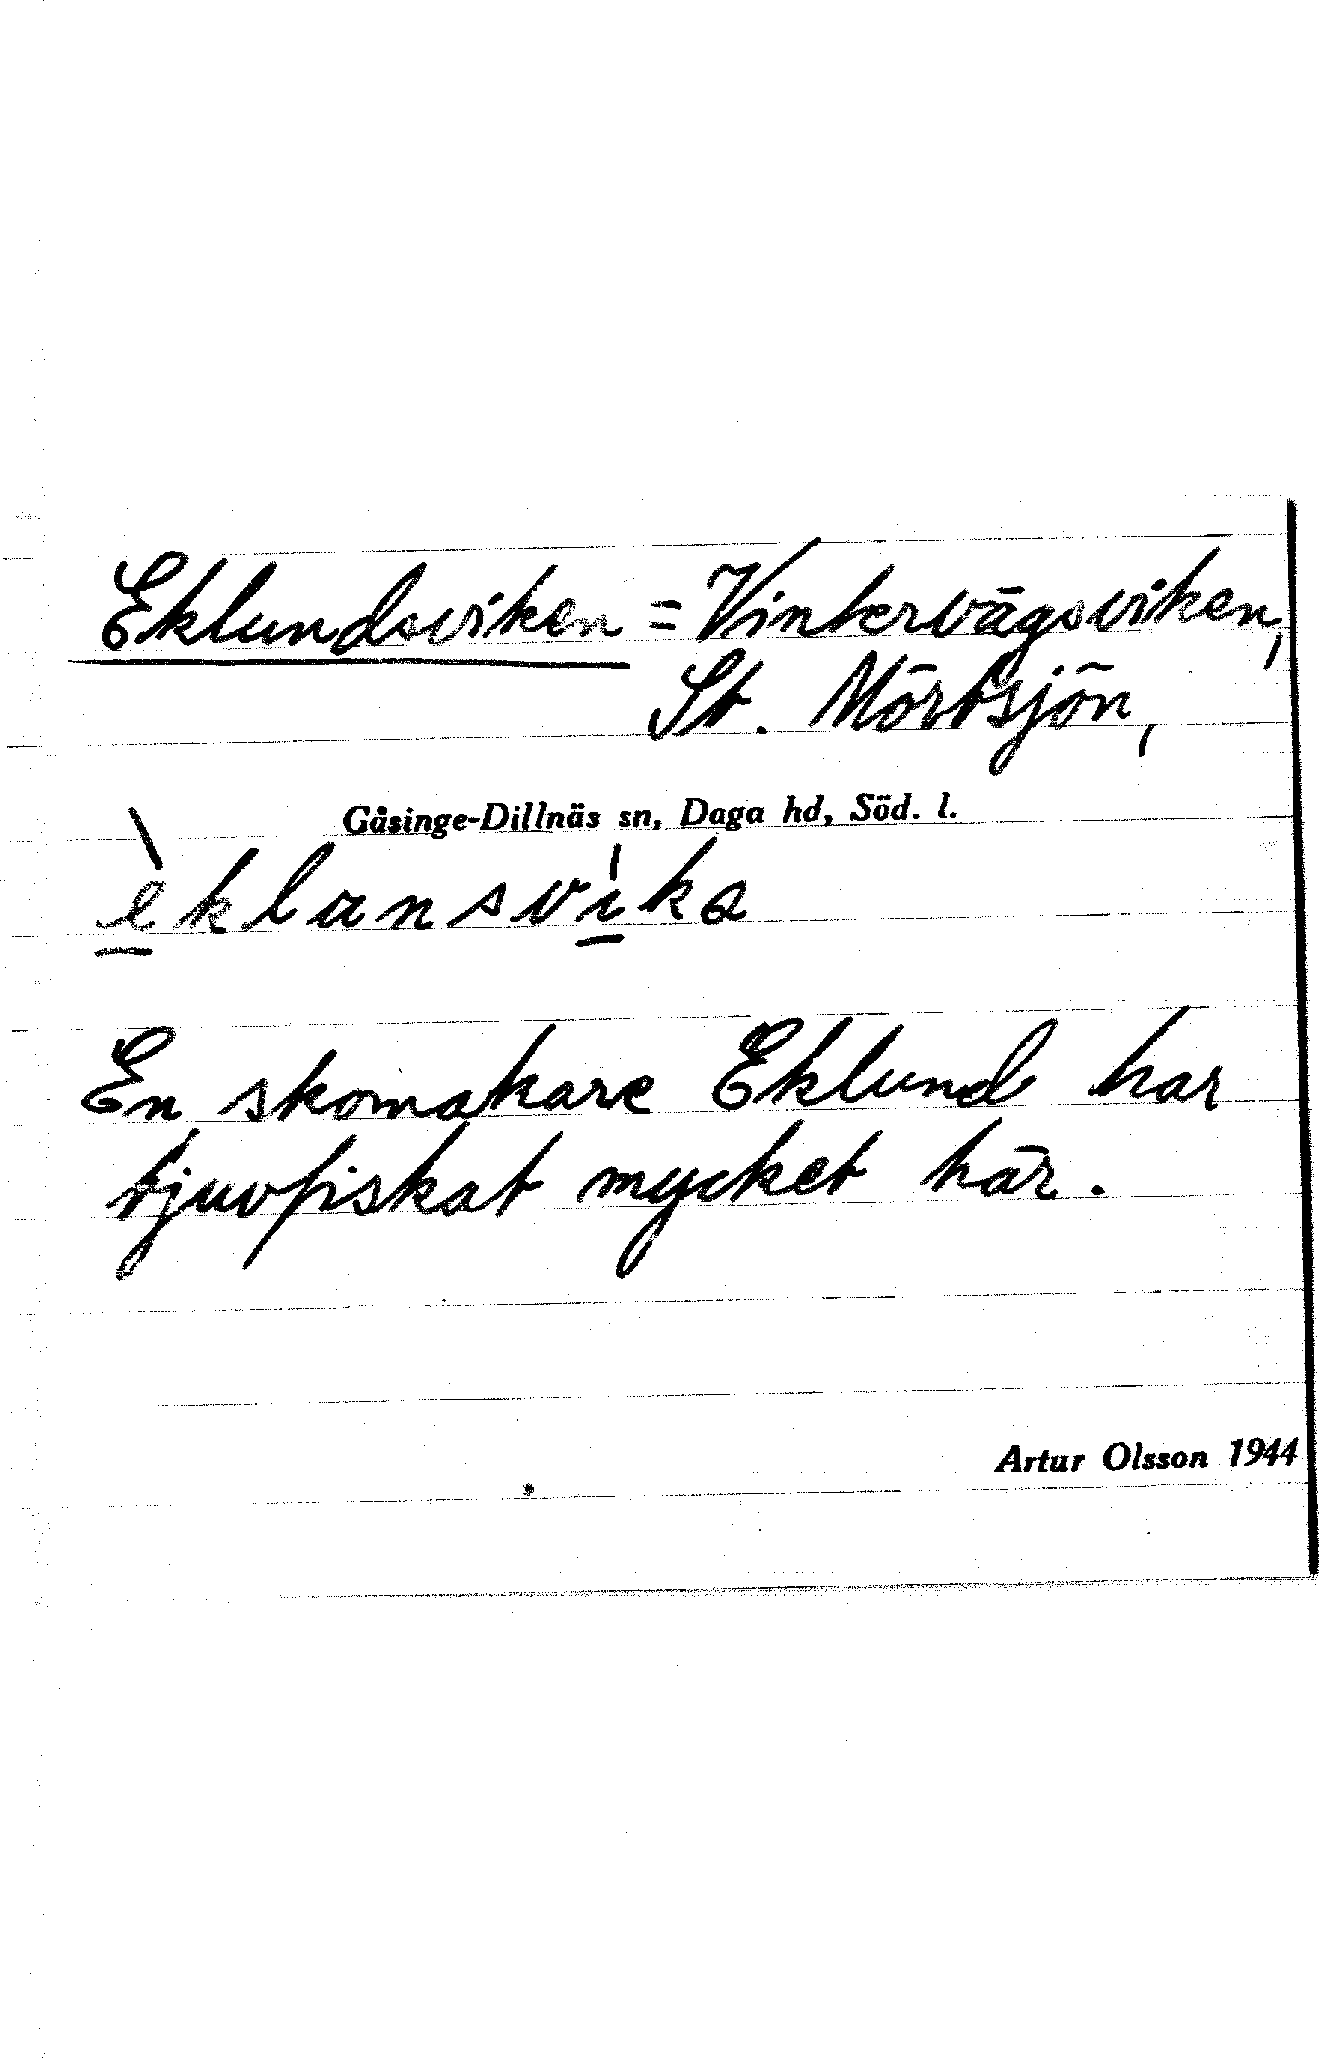 Eklundsviken = Vintervägsviken,
St. Mörtsjön,
Gåsinge-Dillnäs sn, Daga hd, Söd. l.
èklansvika
En skomakare Eklund har
tjuvfiskat mycket här.
Artur Olsson 1944